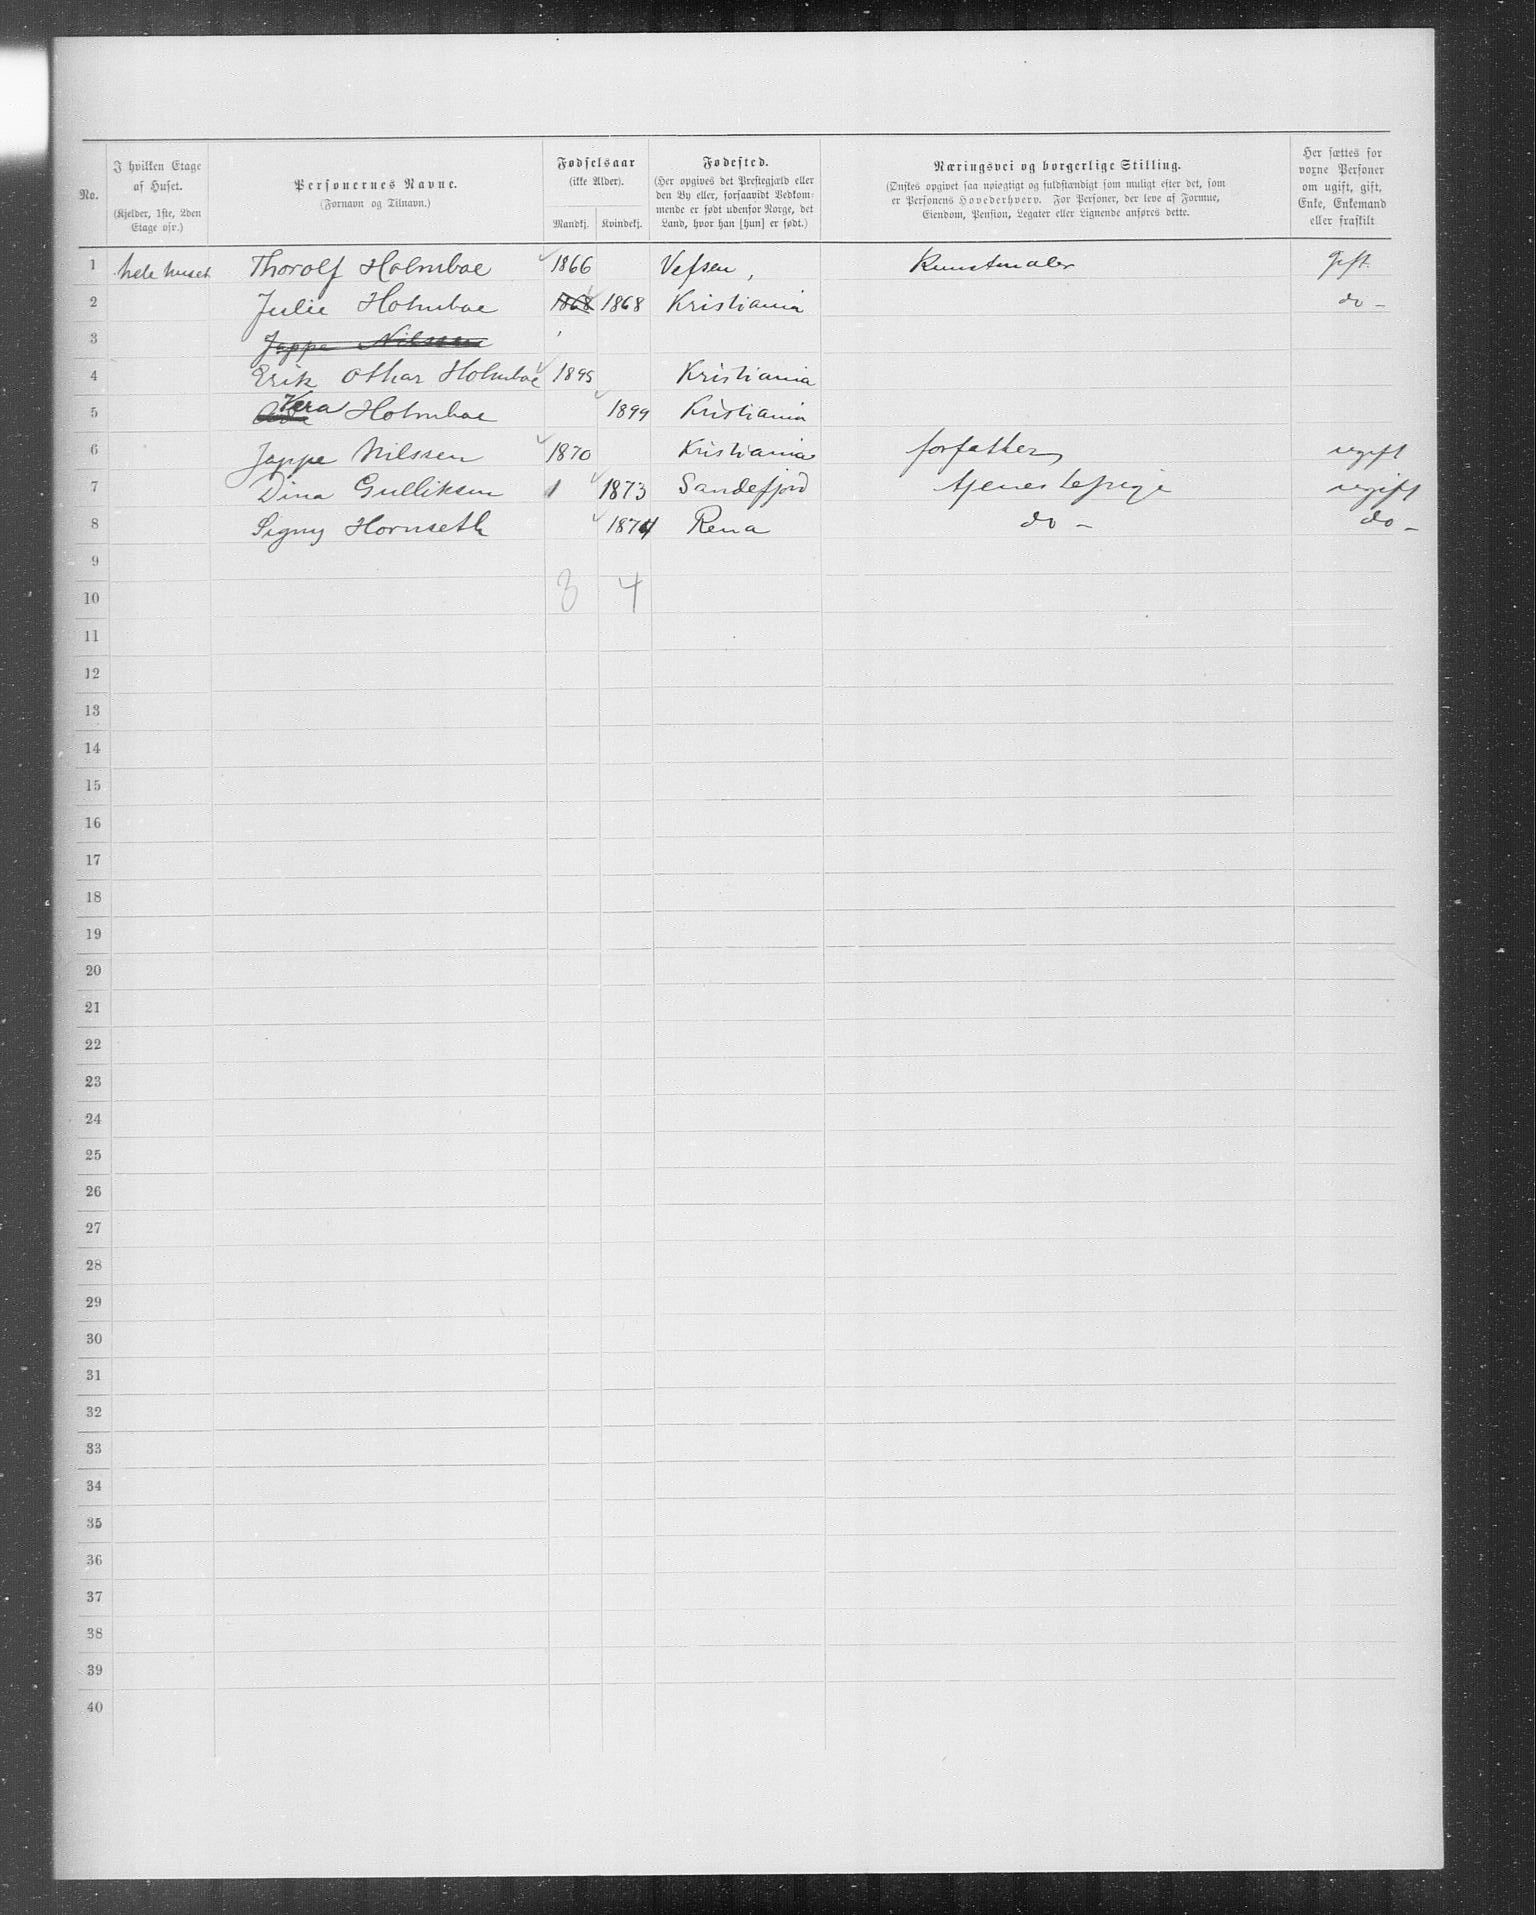 No.
I hvilken Etage af Huset.
(Kjelder, 1ste, 2den Etage osv.)
Personernes Navne.
(Fornavn og Tilnavn.)
Fødselsaar
(ikke Alder).
Mandkj. Kvindekj.
Fødested.
(Her opgives det Prestegjæld eller
den By eller, forsaavidt Vedkom-
mende er født udenfor Norge, det
Land, hvor han [hun] er født.)
Næringsvei og borgerlige Stilling.
(Ønskes opgivet saa nøiagtigt og fuldstændigt som muligt efter det, som
er Personens Hovederhverv. For Personer, der leve af Formue,
Eiendom, Pension, Legater eller Lignende anføres dette.
Her sættes for
voxne Personer
om ugift, gift,
Enke, Enkemand
eller fraskilt
1 hele huset Thorolf Holmboe 1866 Vefsen, Kunstmaler gift.
2 Julie Holmboe 1868 1868 Kristiania do -
3 Jappe Nilssen
4 Erik Othar Holmboe 1895 Kristiania
5 Vera Holmboe 1899 Kristiania
6 Jappe Nilssen 1870 Kristiania forfatter ugift
7 Dina Gulliksen 1 1873 Sandefjord tjenestepige ugift
8 Signy Hornseth 1874 Rena do - do -
9
10 3 4
11
12
13
14
15
16
17
18
19
20
21
22
23
24
25
26
27
28
29
30
31
32
33
34
35
36
37
38
39
40